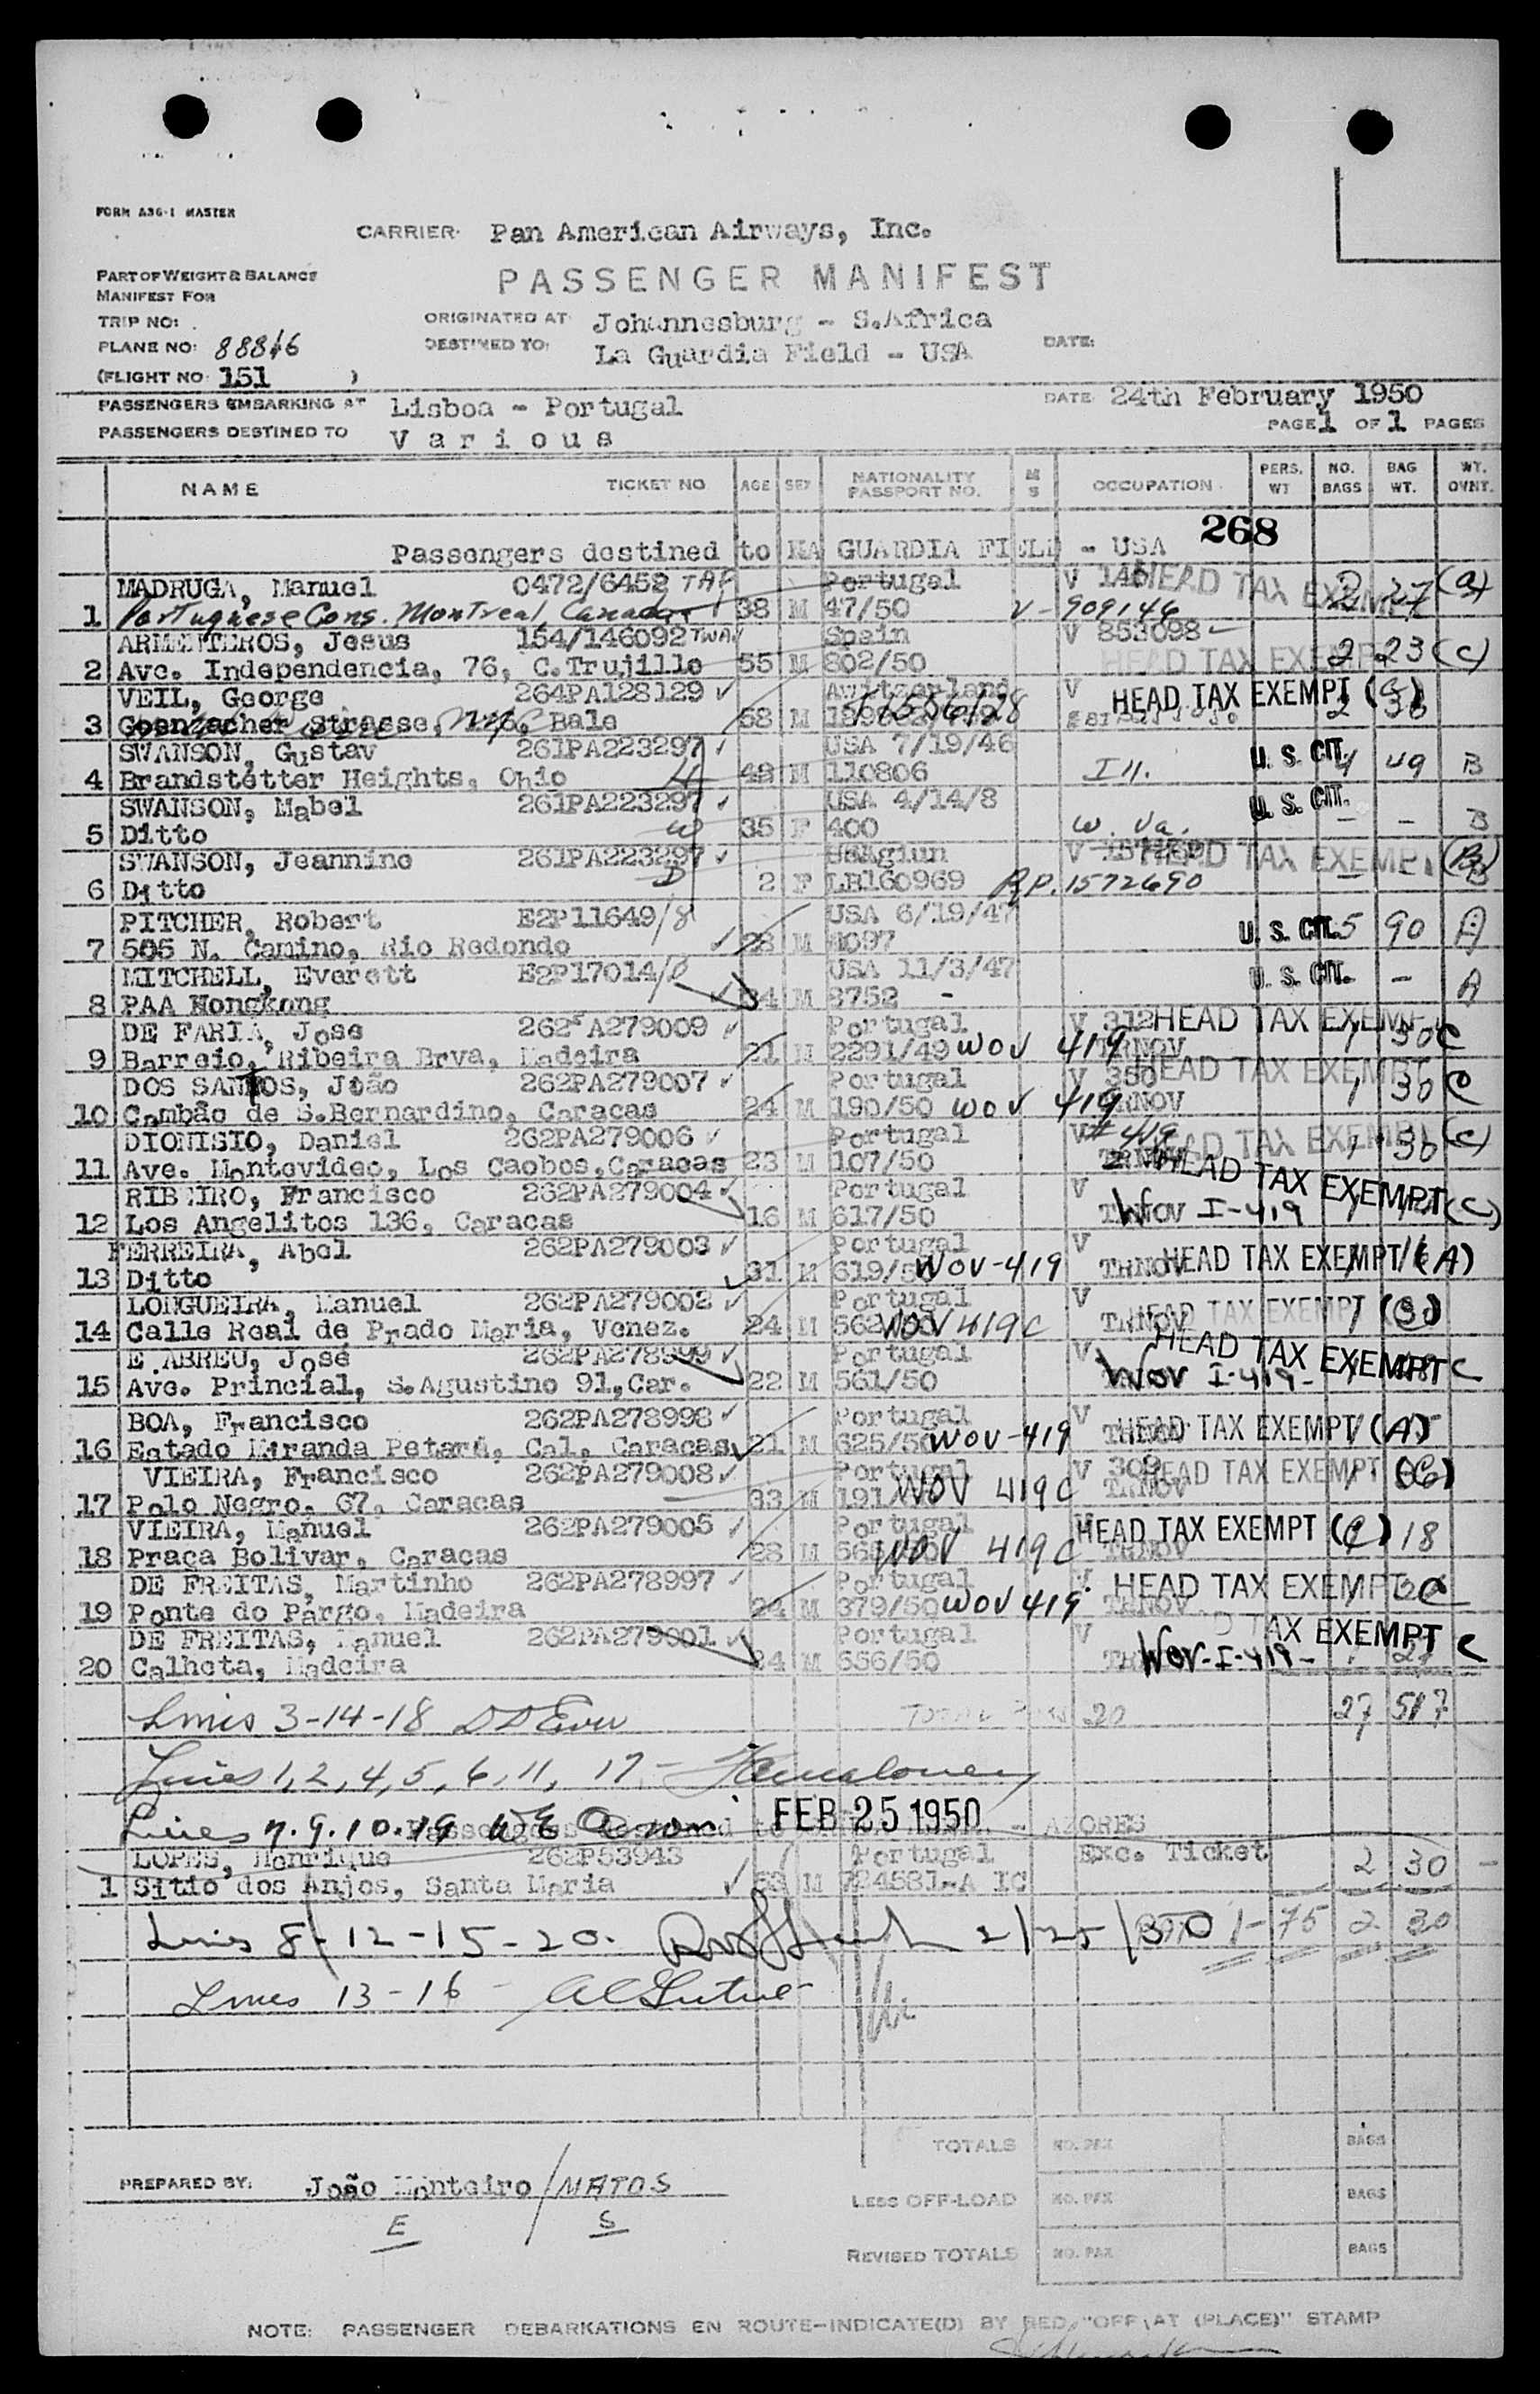 FORM A36-1 MASTER
CARRIER: Pan American Airways, Inc.
PASSENGER MANIFEST
PART OF WEIGHT & BALANCE
MANIFEST FOR
TRIP NO:
ORIGINATED AT: Johannesburg - S.Africa
PLANE NO: 88846
DESTINED TO: La Guardia Field - USA DATE:
(FLIGHT NO: 151 )
PASSENGERS EMBARKING AT Lisboa - Portugal DATE: 24th February 1950
PASSENGERS DESTINED TO Various PAGE 1 OF 1 PAGES
NAME TICKET NO AGE SEX NATIONALITY PASSPORT NO. M S OCCUPATION PERS. WT NO. BAGS BAG WT. WT. OVNT.
268
Passengers destined to GUARDIA FIELD - USA
MADRUGA, Manuel 0472/6452 TAP Portugal V HEAD TAX EXEMPT 2 27 (a)
1 Portuguese Cons. Montreal Canada 38 M 47/50 V-909146
ARMENTEROS, Jesus 154/146092 TWA Spain V 853098
2 Ave. Independencia, 76, C.Trujillo 55 M 802/50 HEAD TAX EXEMPT 2 23 (c)
VEIL, George 264PA128129 Switzerland V HEAD TAX EXEMPT
3 Strasse, Bale 58 M 2
SWANSON, Gustav 261PA223297 USA 7/19/46 U. S. CIT.
4 Brandstetter Heights, Ohio 48 M 110806 Ill. 4 49 B
SWANSON, Mabel 261PA223297 USA 4/14/8 U. S. CIT.
5 Ditto W 35 F 400 W. Va. - - B
SWANSON, Jeannine 261PA223297 V HEAD TAX EXEMPT (B)
6 Ditto D 2 F LB160969 R.P. 1572690
PITCHER, Robert E2P11649/8 USA 6/19/47
7 505 N. Camino, Rio Redondo 28 M 4097 U. S. CIT. 5 90 A
MITCHELL, Everett E2P17014/ USA 11/3/47 U. S. CIT. -
8 PAA Hongkong 34 M 8752 - A
DE FARIA, Jose 262PA279009 Portugal V 312 HEAD TAX EXEMPT
9 Barreio, Ribeira Brva, Madeira 21 M 2291/49 WOV 419 TRNOV 1 30 C
DOS SANTOS, João 262PA279007 Portugal V 350 HEAD TAX EXEMPT
10 Combão de S.Bernardino, Caracas 24 M 190/50 WOV 419 TRNOV 1 30 C
DIONISIO, Daniel 262PA279006 Portugal V # 419 HEAD TAX EXEMPT 1 30 (c)
11 Ave. Montevideo, Los Caobos, Caracas 23 M 107/50
RIBEIRO, Francisco 262PA279004 Portugal V HEAD TAX EXEMPT
12 Los Angelitos 136, Caracas 16 M 617/50 WOV I-419 (C)
FERREIRA, Abel 262PA279003 Portugal V
13 Ditto 31 M 619/50 WOV-419 TRNOV HEAD TAX EXEMPT (A)
LONGUEIRA, Manuel 262PA279002 Portugal V
14 Calle Real de Prado Maria, Venez. 24 M WOV 419 C TRNOV HEAD TAX EXEMPT 1
E ABREU, José 262PA278999 Portugal V HEAD TAX EXEMPT C
15 Ave. Princial, S.Agustino 91, Car. 22 M 561/50 WOV I-419-
BOA, Francisco 262PA278998 Portugal V
16 Estado Miranda Petaré, Cal. Caracas 21 M 625/50 WOV-419 TRNOV HEAD TAX EXEMPT (A)
VIEIRA, Francisco 262PA279008 Portugal V HEAD TAX EXEMPT
17 Palo Negro, 67, Caracas 33 M WOV 419 C TRNOV
VIEIRA, Manuel 262PA279005 Portugal HEAD TAX EXEMPT (C) 18
18 Praca Bolivar, Caracas 28 M WOV 419 C TRNOV
DE FREITAS, Martinho 262PA278997 Portugal V HEAD TAX EXEMPT C
19 Ponte do Pargo, Madeira 24 M 379/50 WOV 419 TRNOV
DE FREITAS, Manuel 262PA279001 Portugal V TAX EXEMPT C
20 Calheta, Madeira 24 M 556/50 WOV-I-419-
Lines 3-14-18 TOTAL 20 27 517
Lines 1, 2, 4, 5, 6, 11, 17 -
Lines 7. 9. 10. 19 FEB 25 1950 - AZORES
LOPES, Henrique 262P53943 Portugal Exc. Ticket 2 30 -
1 Sitio dos Anjos, Santa Maria 53 M 724581-A IC
Lines 8-12-15-20. 2/25/50 1- 75 2 30
Lines 13-16
TOTALS NO. PAX BAGS
PREPARED BY: João Monteiro / MATOS
LESS OFF-LOAD NO. PAX BAGS
E S
REVISED TOTALS NO. PAX BAGS
NOTE: PASSENGER DEBARKATIONS EN ROUTE-INDICATE(D) BY RED, "OFF AT (PLACE)" STAMP